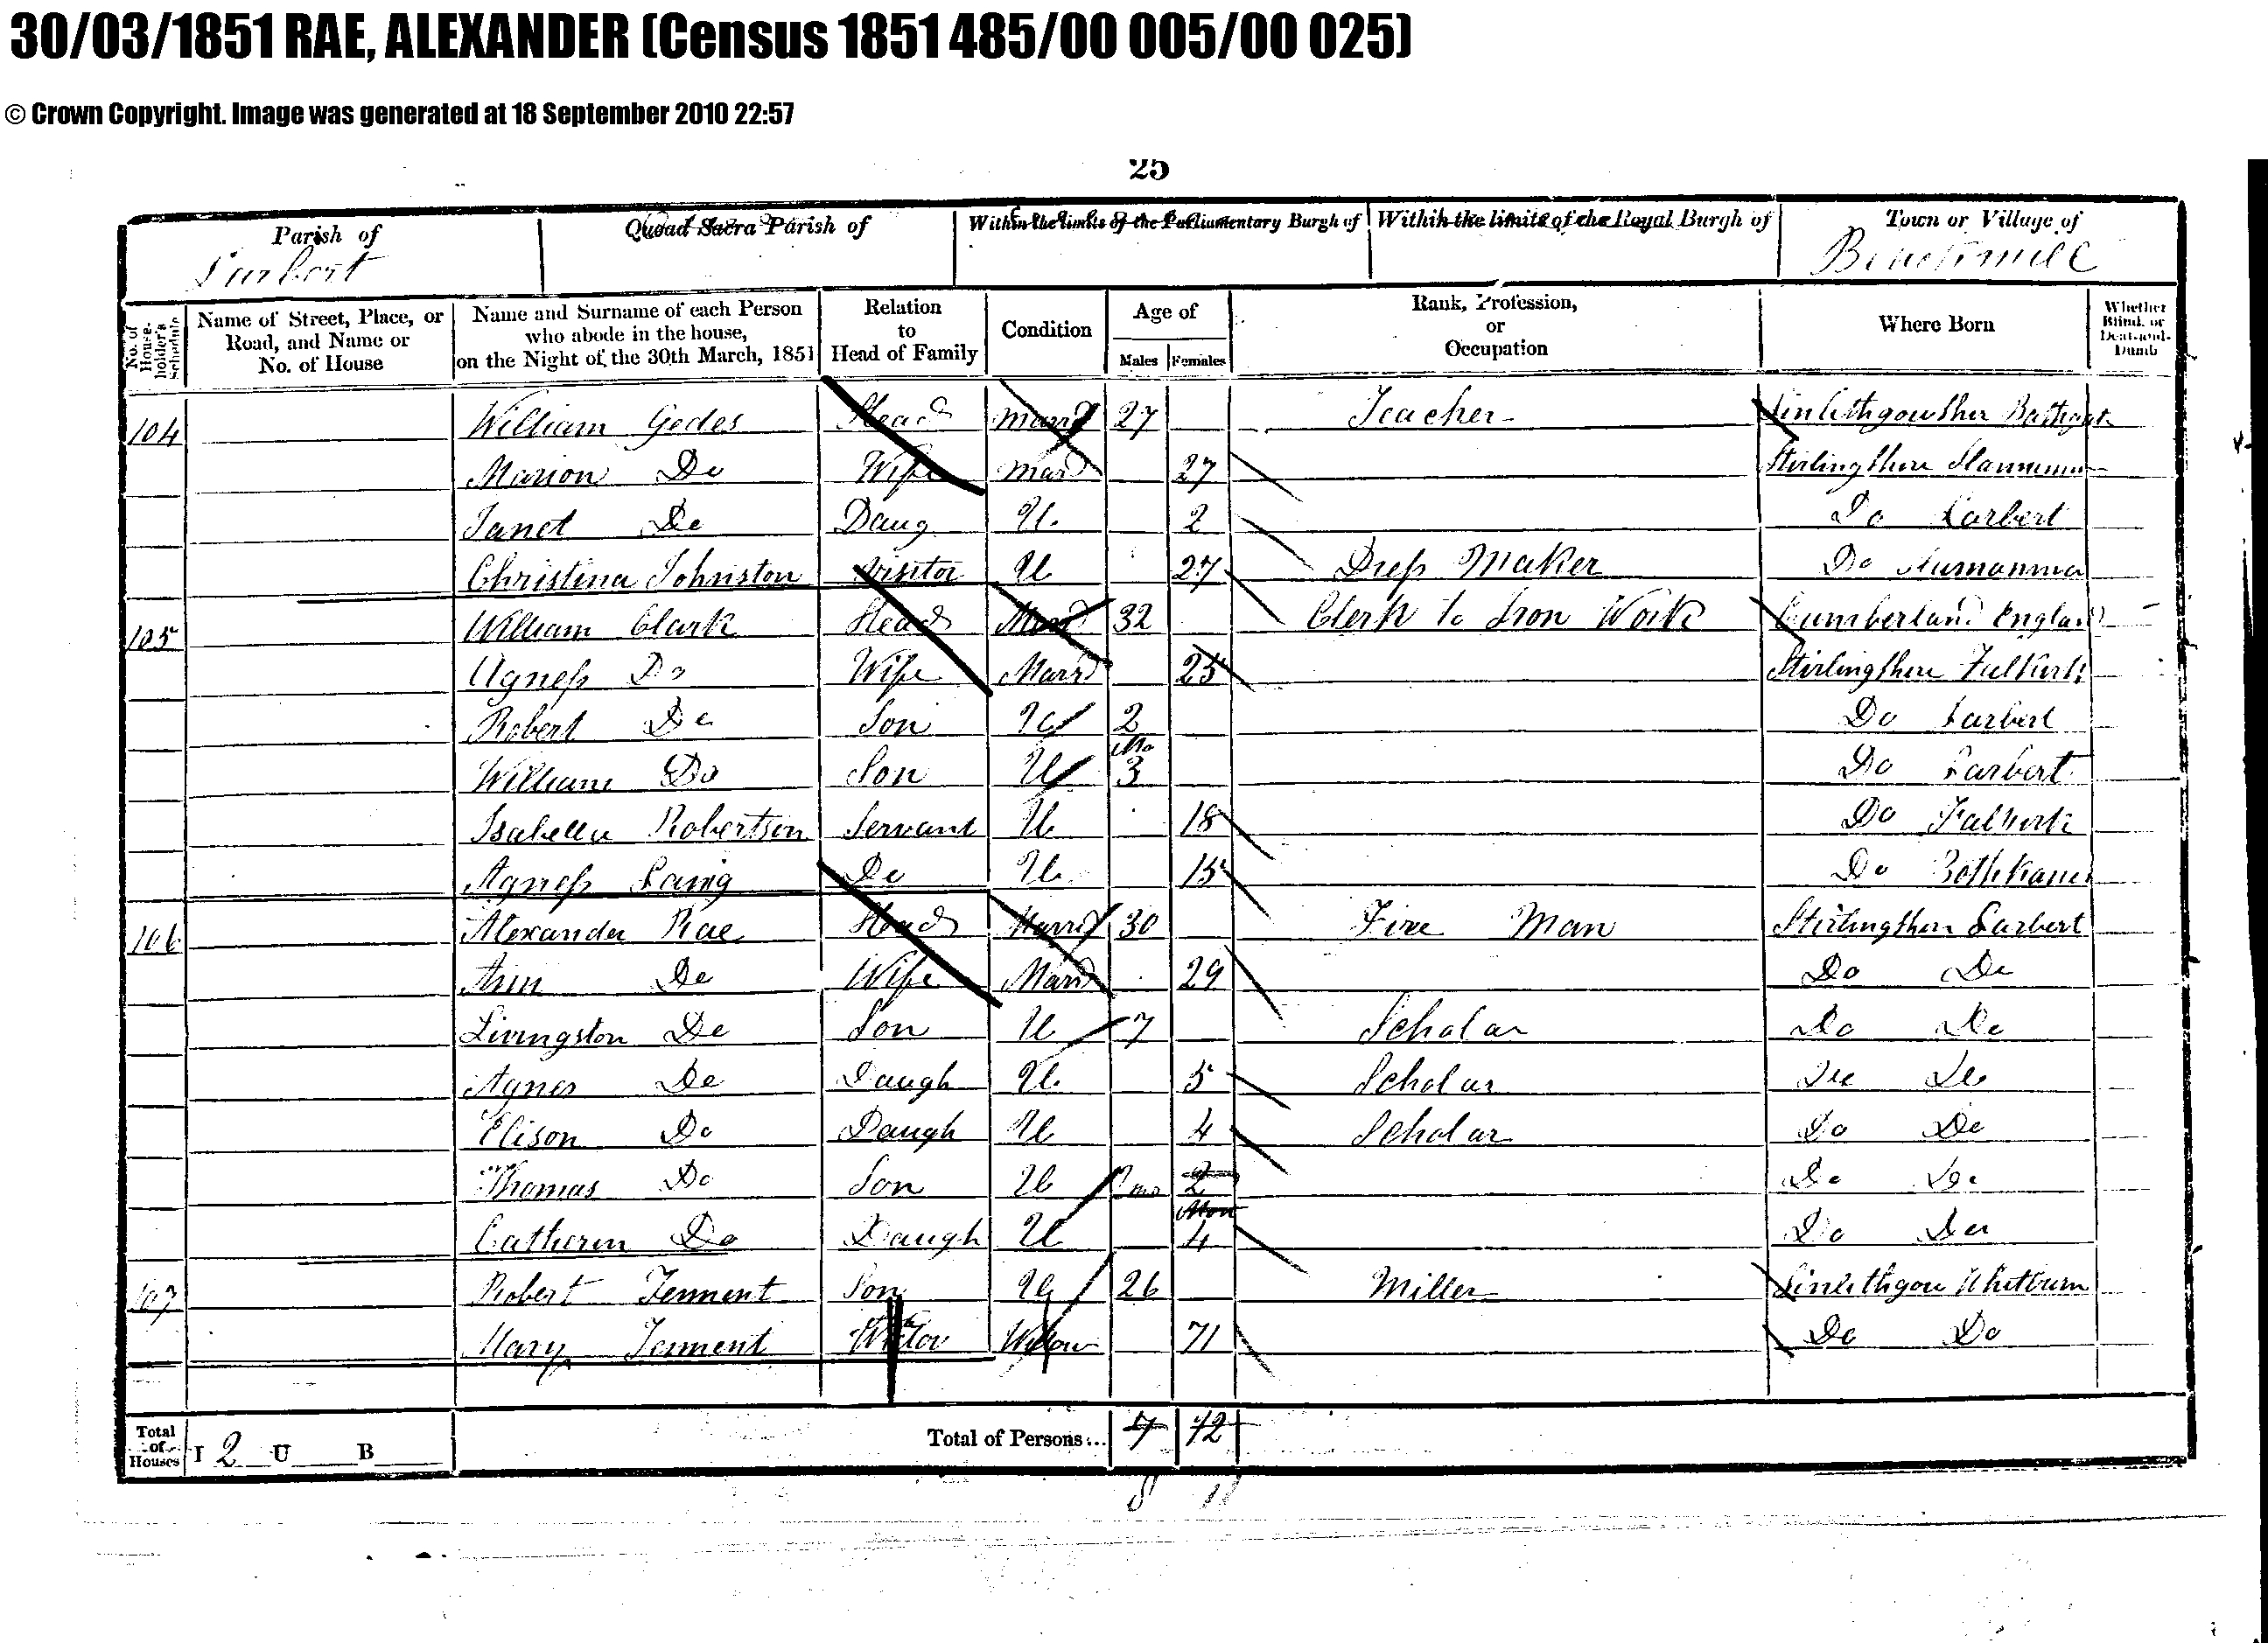 30/03/1851 RAE, ALEXANDER (Census 1851 485/00 005/00 025)
© Crown Copyright. Image was generated at 18 September 2010 22:57
25
Parish of Quoad Sacra Parish of Within the limits of the Parliamentary Burgh of Within the limits of the Royal Burgh of Town or Village of
Larbert
No. of House-holder's Schedule Name of Street, Place, or Road, and Name or No. of House Name and Surname of each Person who abode in the house, on the Night of the 30th March, 1851 Relation to Head of Family Condition Age of Males Females Rank, Profession, or Occupation Where Born Whether Blind, or Deaf-and-Dumb
104 William Gedes Head Marrd 27 Teacher Linlithgowsher
Marion Do Wife Mard 27 Stirlingshire
Janet Do Daug U 2 Do Larbert
Christina Johnston Visitor U 27 Dress Maker Do
105 William Clark Head Marrd 32 Clerk to Iron Work Cumberland England
Agness Do Wife Marrd 25 Stirlingshire Falkirk
Robert Do Son U 2 Do Larbert
William Do Son U Mo 3 Do Larbert
Isabella Robertson Servant U 18 Do Falkirk
Agness Laing Do U 15 Do
106 Alexander Rae Head Marrd 30 Fire Man Stirlingshire Larbert
Ann Do Wife Mard 29 Do Do
Livingston Do Son U 7 Scholar Do Do
Agnes Do Daugh U 5 Scholar Do Do
Elison Do Daugh U 4 Scholar Do Do
Thomas Do Son U 2 Do Do
Catherin Do Daugh U Mon 4 Do Do
107 Robert Tennent Son U 26 Miller Linlithgow Whitburn
Mary Tennent Widow 71 Do Do
Total of Houses I 2 U B Total of Persons... 7 12
8 11